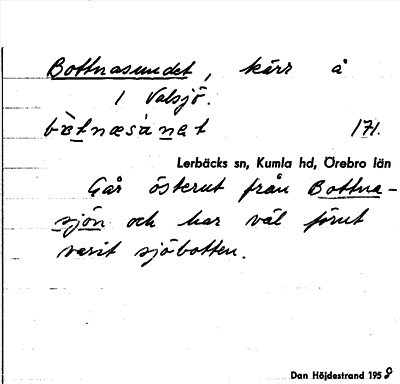 Bottnasundet, kärr å
1 Valsjö.
bòtnæsànet 171.
Lerbäcks sn, Kumla hd, Örebro län
Går österut från Bottna-
sjön och har väl förut
varit sjöbotten.
Dan Höjdestrand 1958